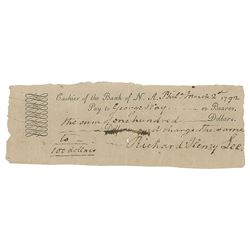 Cashier of the Bank of N. A. Phila March 2d 1792
Pay to George Way or Bearer,
the sum of one hundred Dollars.
and charge the same
to
100 dollars Richard Henry Lee